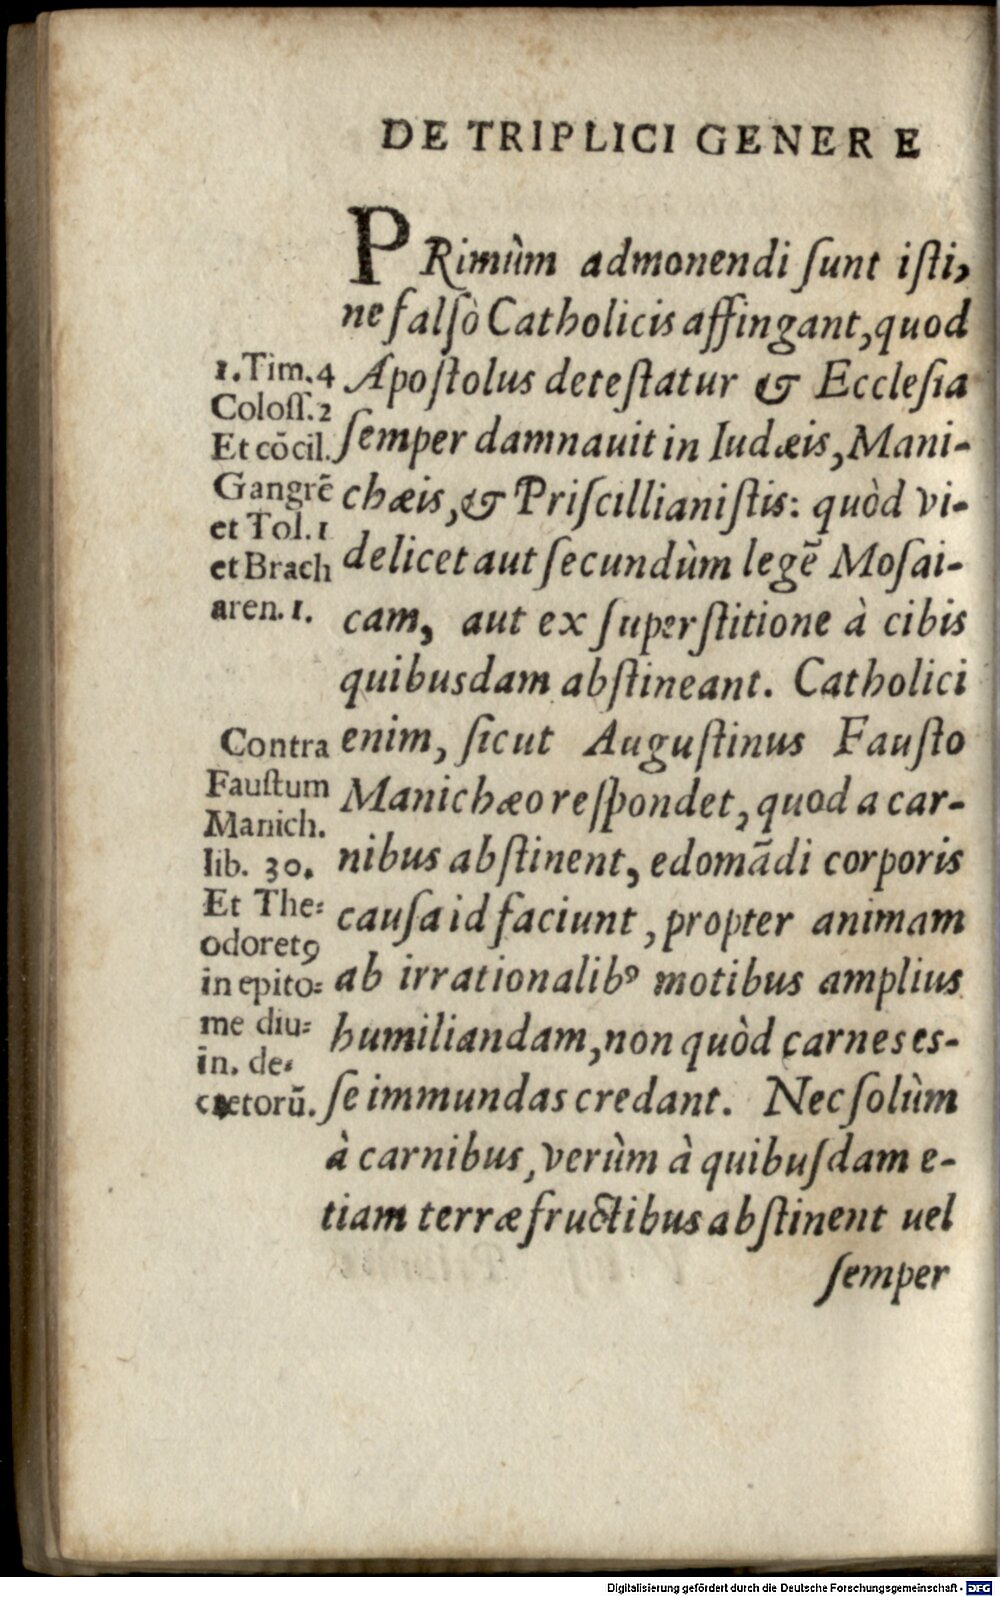 DE TRIPLICI GENERE
PRimùm admonendi ſunt iſti,
ne falſò Catholicis affingant, quod
Apoſtolus deteſtatur & Eccleſia
ſemper damnauit in Iudæis, Mani-
chæis, & Priſcillianiſtis: quòd vi-
delicet aut ſecundùm legē Moſai-
cam, aut ex ſuperſtitione à cibis
quibusdam abſtineant. Catholici
enim, ſicut Auguſtinus Fauſto
Manichæo reſpondet, quod a car-
nibus abſtinent, edomādi corporis
cauſa id faciunt, propter animam
ab irrationalibꝰ motibus amplius
humiliandam, non quòd carnes es-
ſe immundas credant. Nec ſolùm
à carnibus, verùm à quibuſdam e-
tiam terræ fructibus abſtinent uel
ſemper
1. Tim. 4
Coloſſ. 2
Et cōcil.
Gangrē
et Tol. 1
et Brach
aren. 1.
Contra
Fauſtum
Manich.
lib. 30.
Et The⸗
odoretꝯ
in epito⸗
me diu⸗
in. de⸗
cretorū.
Digitalisierung gefördert durch die Deutsche Forschungsgemeinschaft - DFG